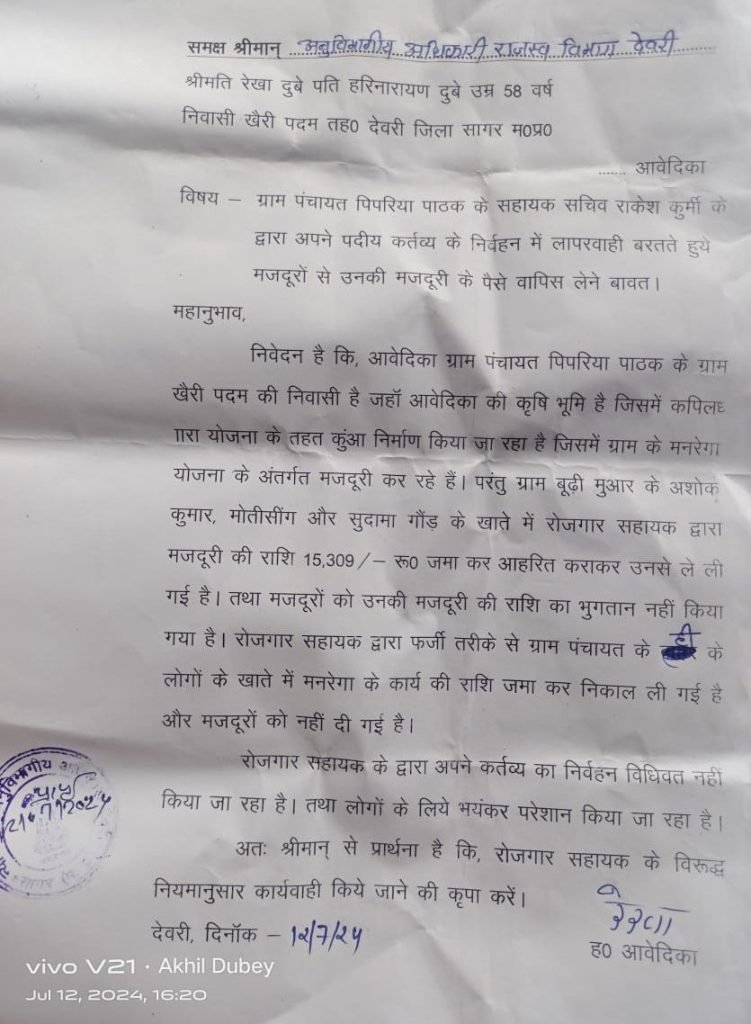 समक्ष श्रीमान् ...अनुविभागीय अधिकारी राजस्व विभाग देवरी.........
श्रीमति रेखा दुबे पति हरिनारायण दुबे उम्र 58 वर्ष
निवासी खैरी पदम तह0 देवरी जिला सागर म0प्र0
....... आवेदिका
विषय – ग्राम पंचायत पिपरिया पाठक के सहायक सचिव राकेश कुर्मी के
द्वारा अपने पदीय कर्तव्य के निर्वहन में लापरवाही बरतते हुये
मजदूरों से उनकी मजदूरी के पैसे वापिस लेने बावत।
महानुभाव,
निवेदन है कि, आवेदिका ग्राम पंचायत पिपरिया पाठक के ग्राम
खैरी पदम की निवासी है जहॉ आवेदिका की कृषि भूमि है जिसमें कपिलध
ारा योजना के तहत कुंआ निर्माण किया जा रहा है जिसमें ग्राम के मनरेगा
योजना के अंतर्गत मजदूरी कर रहे हैं। परंतु ग्राम बूढ़ी मुआर के अशोक
कुमार, मोतीसींग और सुदामा गौंड़ के खाते में रोजगार सहायक द्वारा
मजदूरी की राशि 15,309/– रू0 जमा कर आहरित कराकर उनसे ले ली
गई है। तथा मजदूरों को उनकी मजदूरी की राशि का भुगतान नहीं किया
गया है। रोजगार सहायक द्वारा फर्जी तरीके से ग्राम पंचायत के ही के
लोगों के खाते में मनरेगा के कार्य की राशि जमा कर निकाल ली गई है
और मजदूरों को नहीं दी गई है।
रोजगार सहायक के द्वारा अपने कर्तव्य का निर्वहन विधिवत नहीं
किया जा रहा है। तथा लोगों के लिये भयंकर परेशान किया जा रहा है।
अतः श्रीमान् से प्रार्थना है कि, रोजगार सहायक के विरूद्ध
नियमानुसार कार्यवाही किये जाने की कृपा करें।
देवरी, दिनॉक – 12/7/24
रेखा
ह0 आवेदिका
vivo V21 · Akhil Dubey
Jul 12, 2024, 16:20